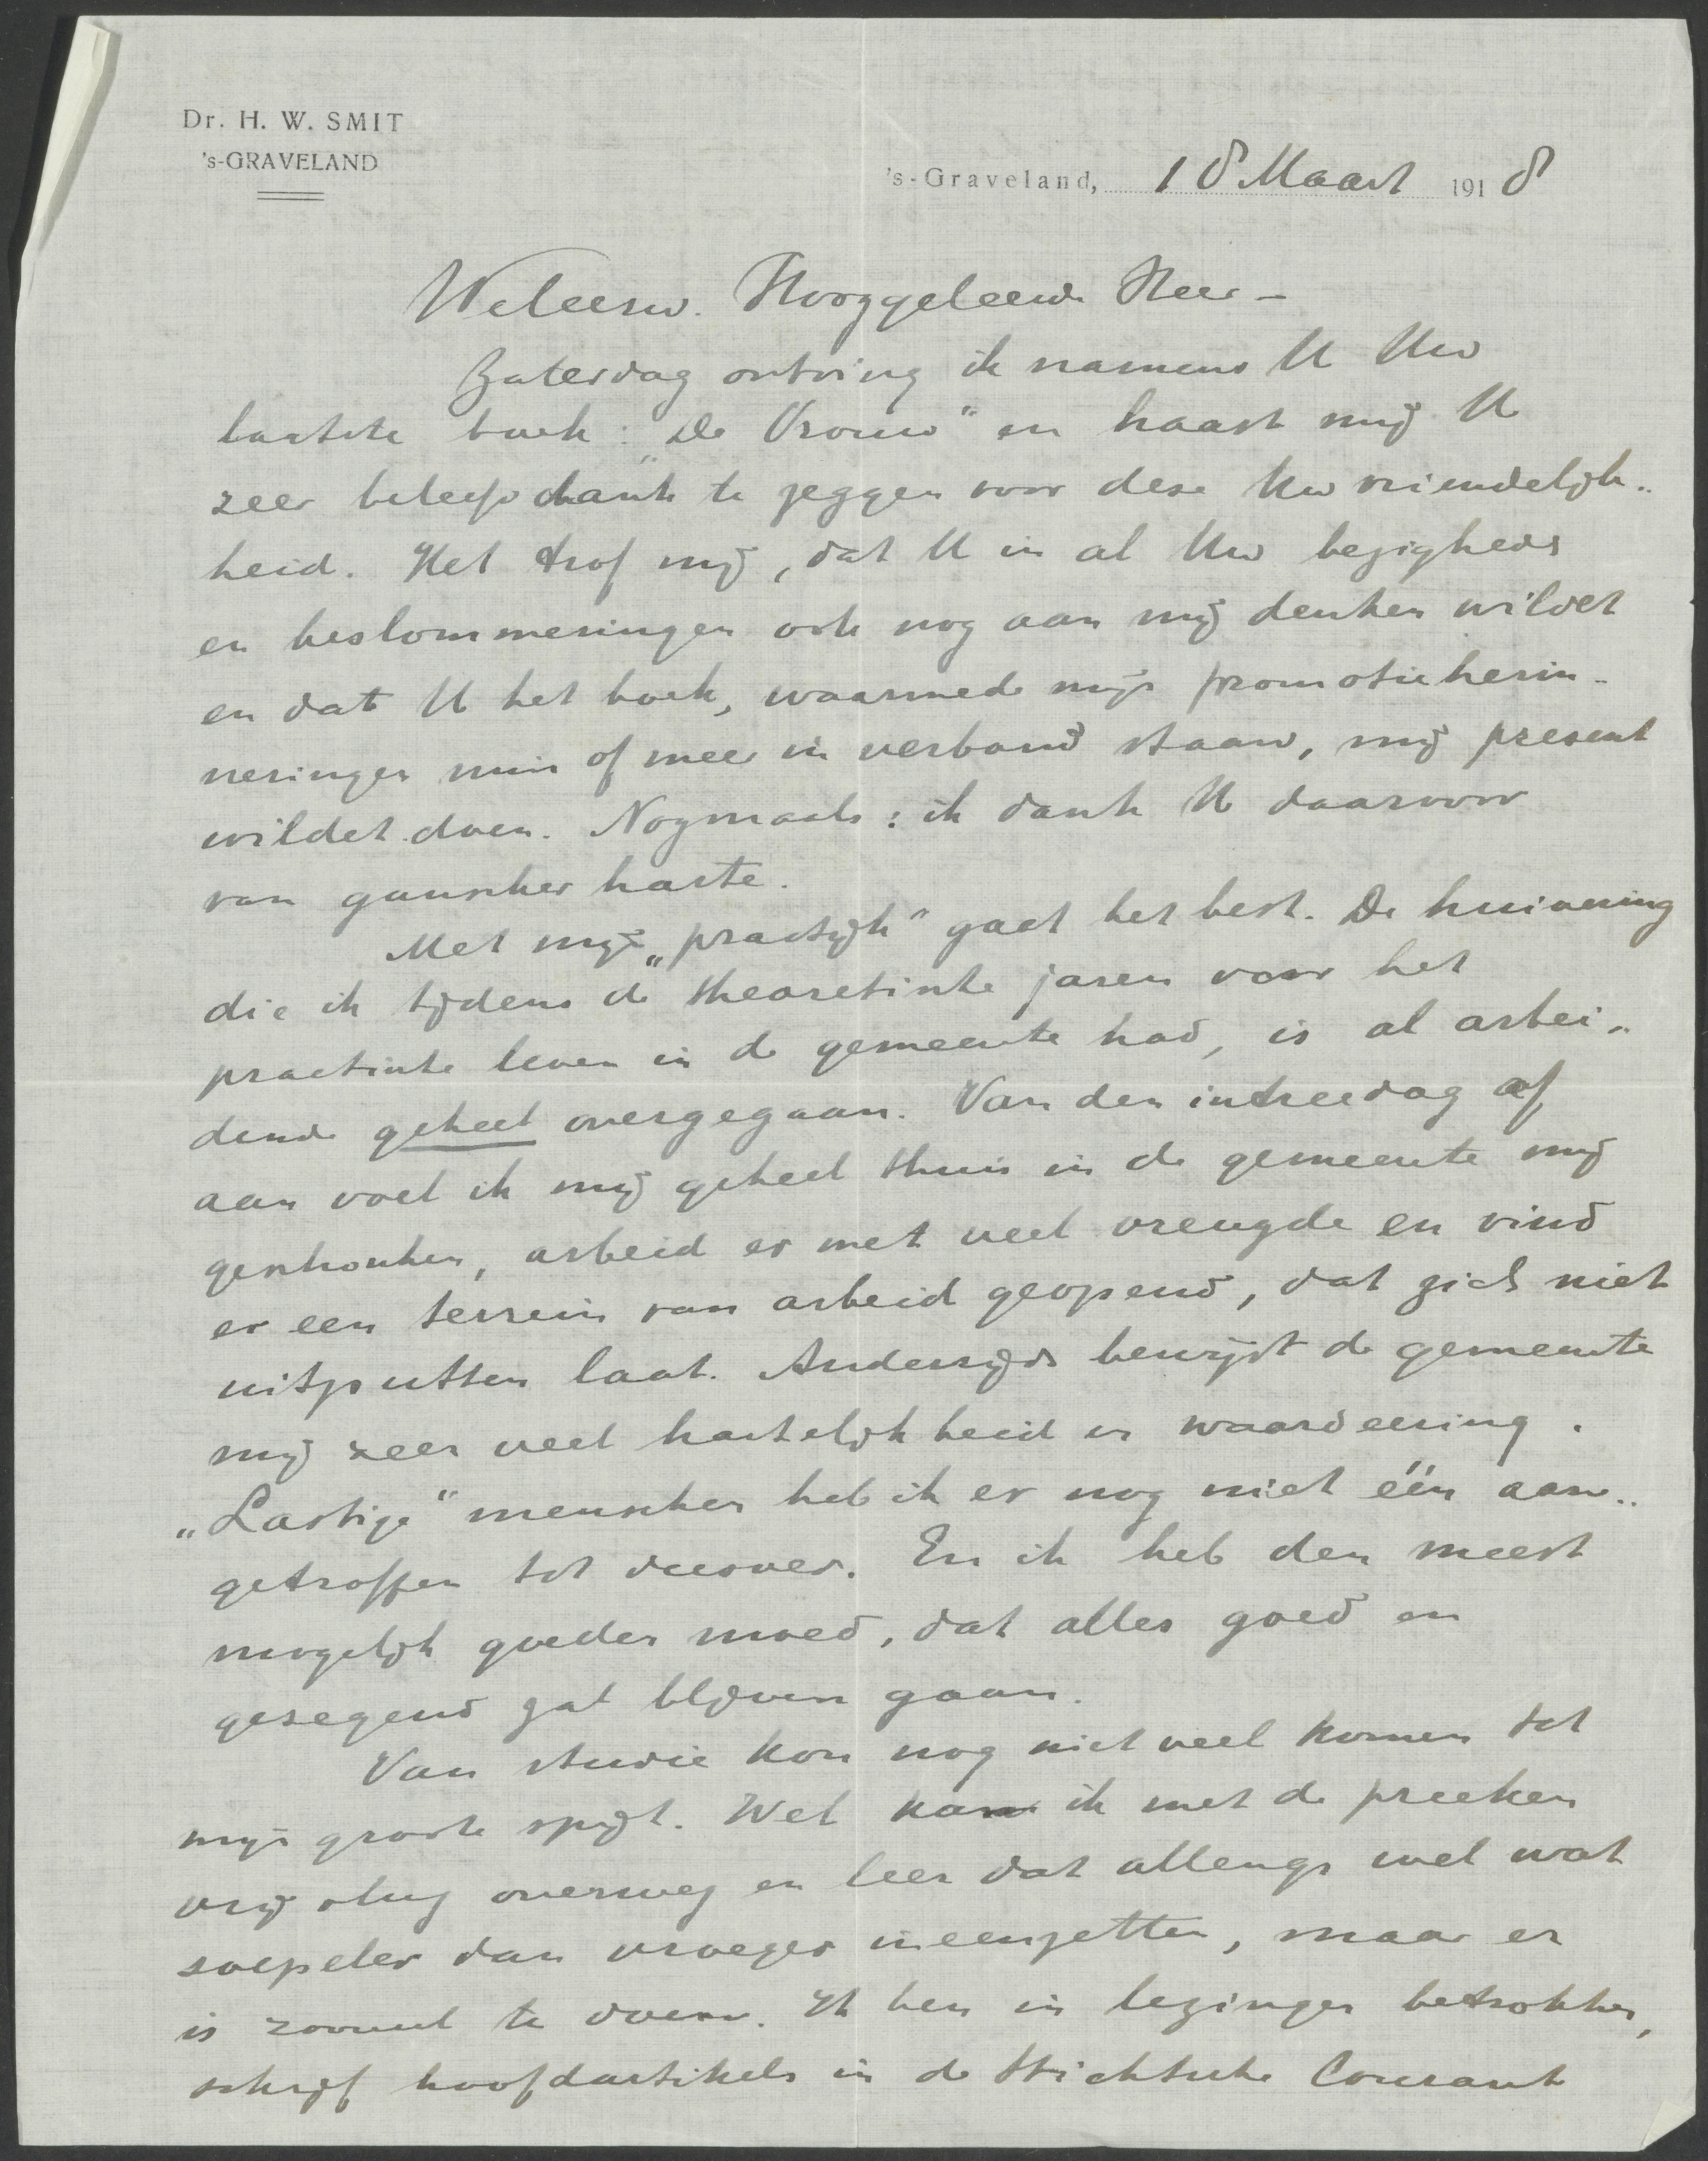 Dr. H. W. SMIT
's-GRAVELAND
's-Graveland, 18 Maart 1918
Weleerw. Hooggeleerde Heer –
Zaterdag ontving ik namens U Uw
laatste boek: „De Vrouw" en haast mij U
zeer beleefd dank te zeggen voor deze Uw vriendelijk-
heid. Het trof mij, dat U in al Uw bezigheds
en beslommeringen ook nog aan mij denken wildet
en dat U het boek, waarmede mijn promotieherin-
neringen min of meer in verband staan, mij present
wildet doen. Nogmaals: ik dank U daarvoor
van ganscher harte.
Met mijn „practijk" gaat het best. De huivering
die ik tijdens de theoretische jaren voor het
practische leven in de gemeente had, is al arbei-
dende geheel overgegaan. Van den intreedag af
aan voel ik mij geheel thuis in de gemeente mij
geschonken, arbeid er met veel vreugde en vind
er een terrein van arbeid geopend, dat zich niet
uitputten laat. Anderzijds bewijst de gemeente
mij zeer veel hartelijkheid en waardeering.
„Lastige" menschen heb ik er nog niet één aan-
getroffen tot dusver. En ik heb den meest
mogelijk goeden moed, dat alles goed en
gezegend zal blijven gaan.
Van studie kon nog niet veel komen tot
mijn groote spijt. Wel kan ik met de preeken
vrij vlug overweg en leer dat allengs wel wat
soepeler dan vroeger ineenzetten, maar er
is zooveel te doen. Ik ben in lezingen betrokken,
schrijf hoofdartikels in de Stichtsche Courant